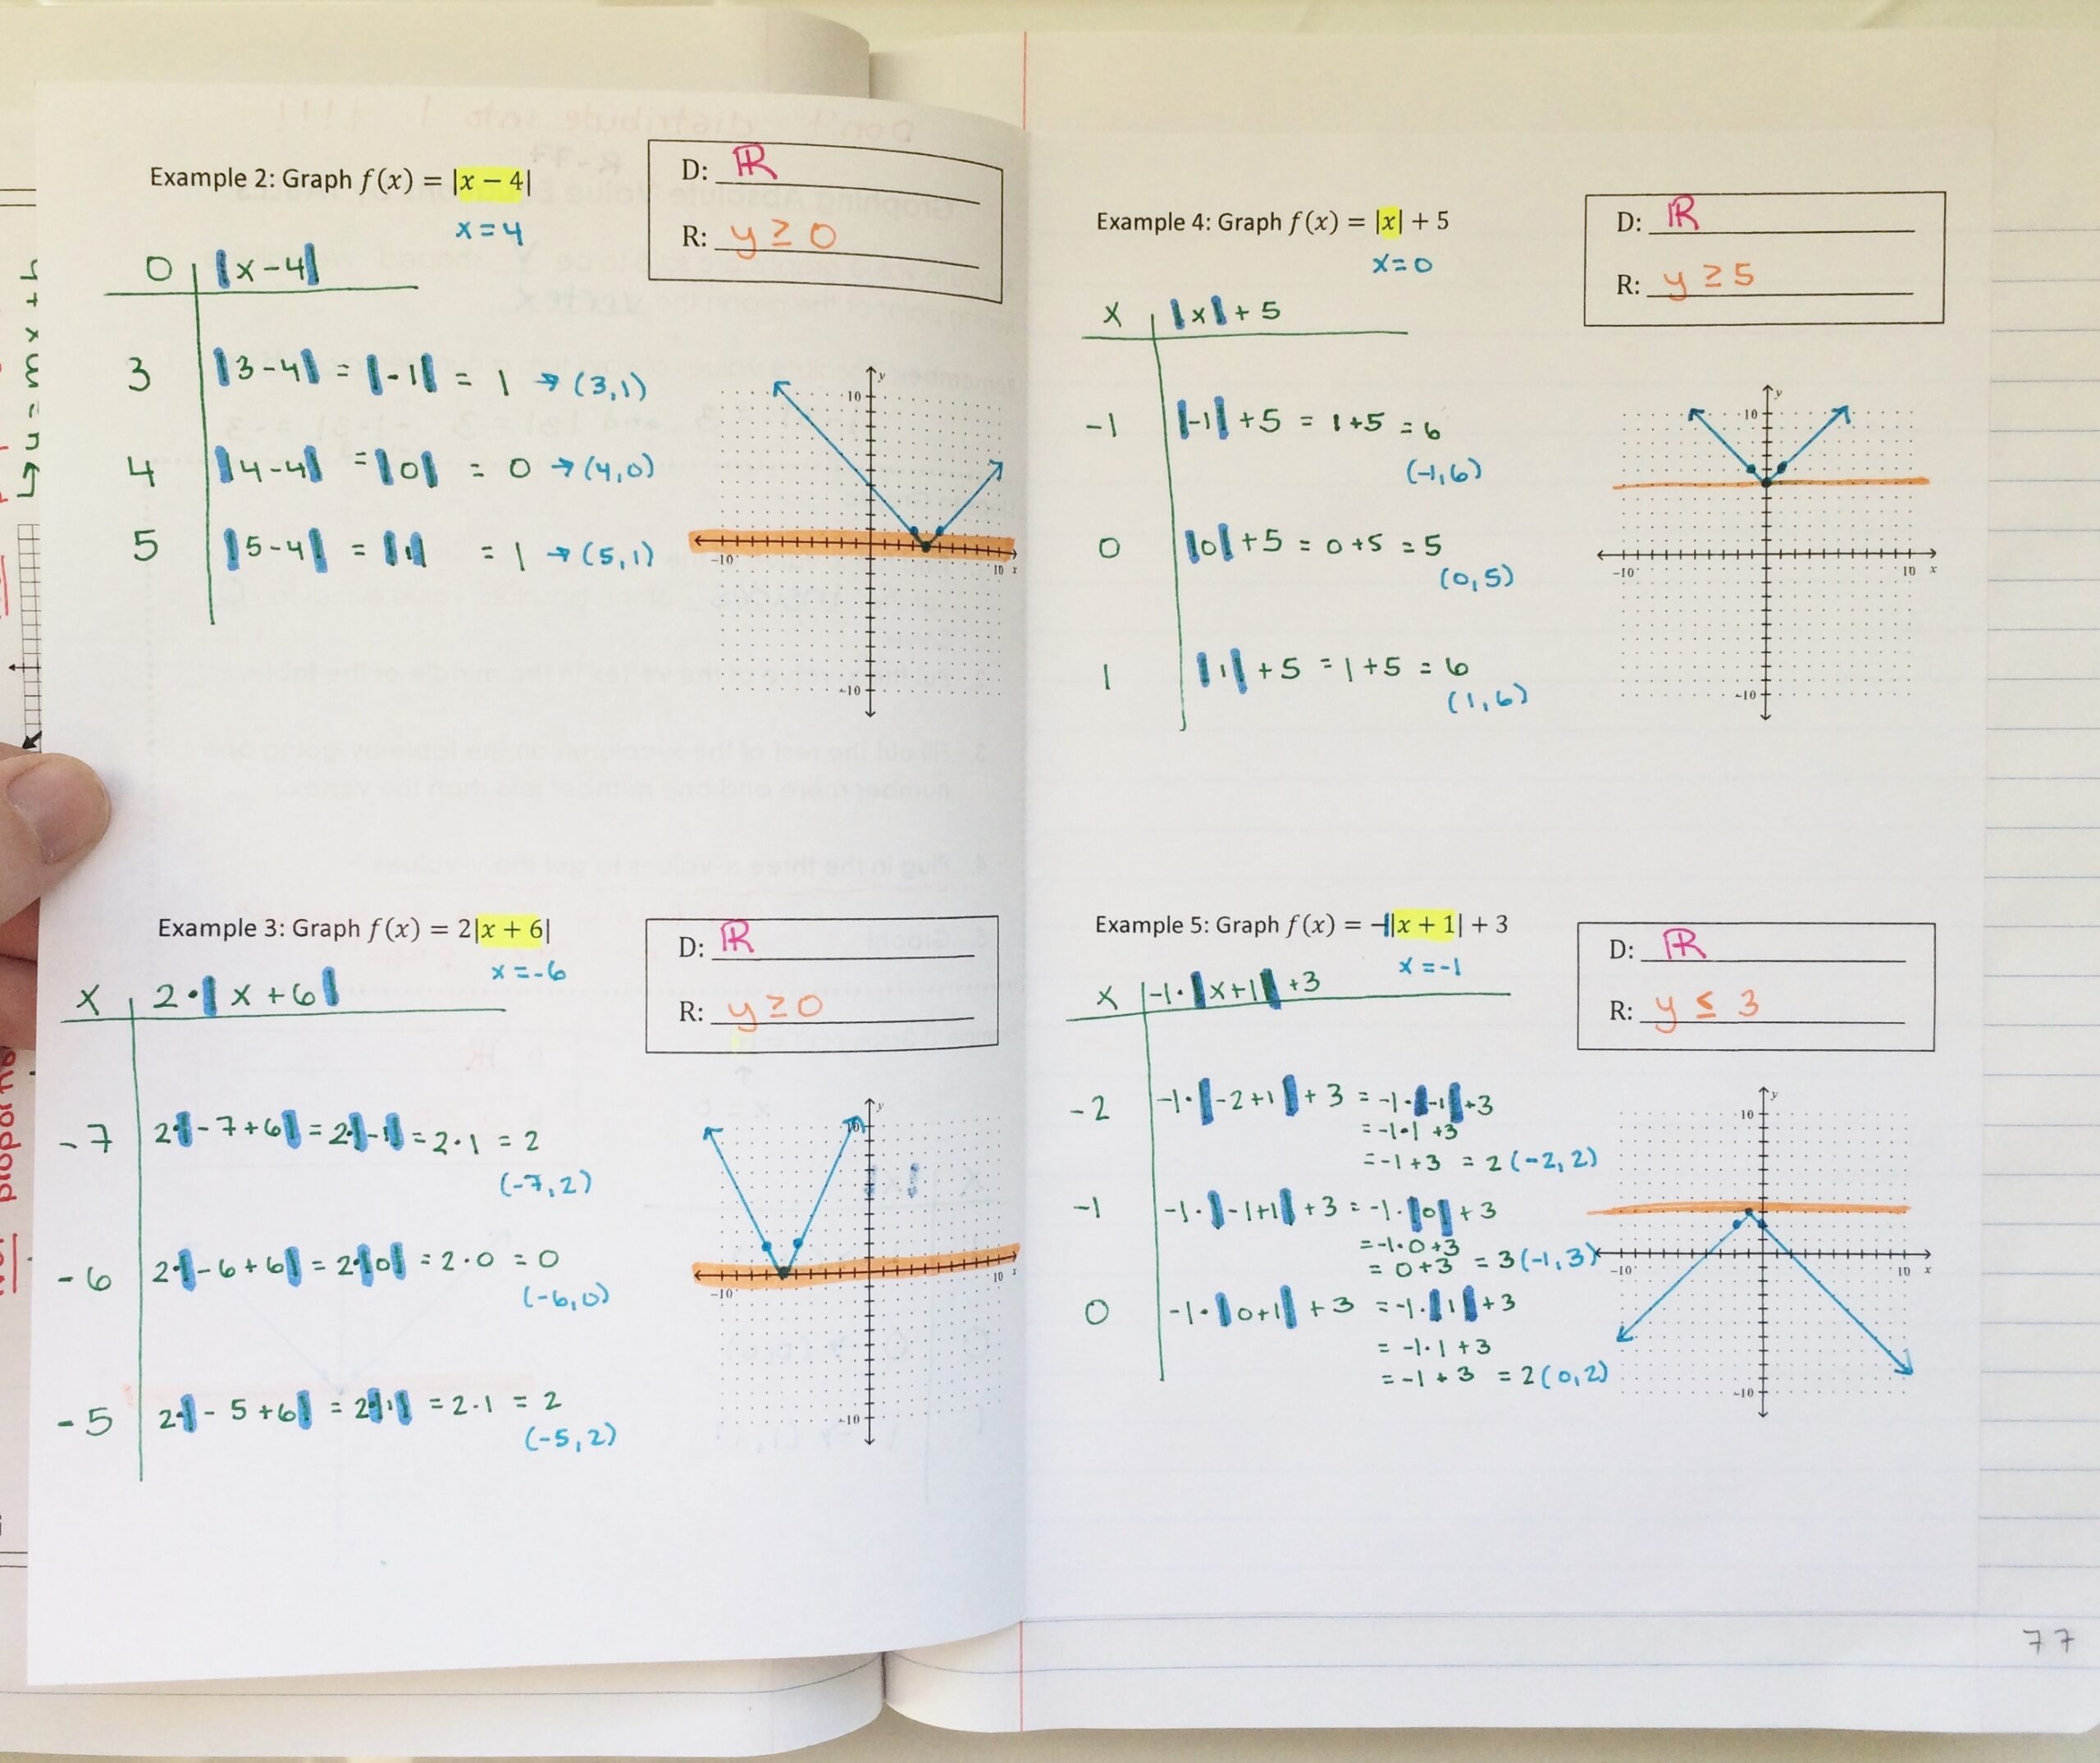 Example 2: Graph f(x) = |x − 4|
x = 4
D: ℝ
R: y ≥ 0
0 |x - 4|
3 |3-4| = |-1| = 1 → (3,1)
4 |4-4| = |0| = 0 → (4,0)
5 |5-4| = |1| = 1 → (5,1)
y
10
-10
10 x
-10
Example 3: Graph f(x) = 2|x + 6|
x = -6
D: ℝ
R: y ≥ 0
x 2·|x + 6|
-7 2·|-7+6| = 2·|-1| = 2·1 = 2
(-7,2)
-6 2·|-6+6| = 2·|0| = 2·0 = 0
(-6,0)
-5 2·|-5+6| = 2·|1| = 2·1 = 2
(-5,2)
y
10
-10
10 x
-10
Example 4: Graph f(x) = |x| + 5
x = 0
D: ℝ
R: y ≥ 5
x |x| + 5
-1 |-1| + 5 = 1+5 = 6
(-1,6)
0 |0| + 5 = 0+5 = 5
(0,5)
1 |1| + 5 = 1+5 = 6
(1,6)
y
10
-10
10 x
-10
Example 5: Graph f(x) = -1|x + 1| + 3
x = -1
D: ℝ
R: y ≤ 3
x -1·|x+1| +3
-2 -1·|-2+1| + 3 = -1·|-1| +3
= -1·1 +3
= -1+3 = 2 (-2,2)
-1 -1·|-1+1| + 3 = -1·|0| + 3
= -1·0+3
= 0+3 = 3 (-1,3)
0 -1·|0+1| + 3 = -1·|1| + 3
= -1·1 + 3
= -1 + 3 = 2 (0,2)
y
10
-10
10 x
-10
77